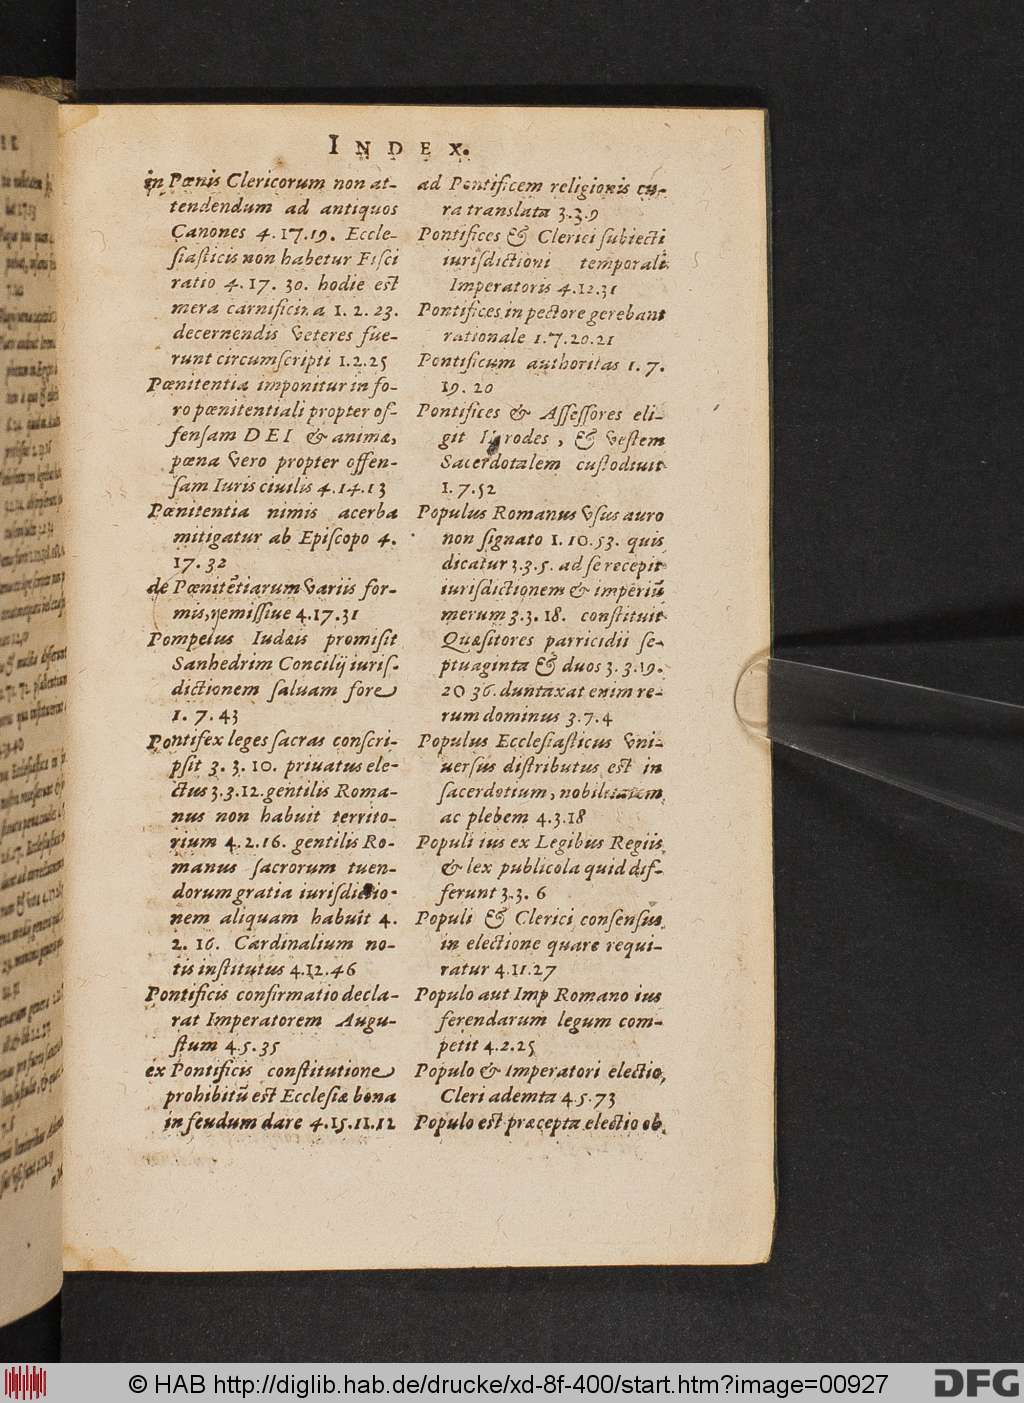 INDEX.
in Pœnis Clericorum non at-
tendendum ad antiquos
Canones 4.17.19. Eccle-
siasticis non habetur Fisci
ratio 4.17.30. hodie est
mera carnificina 1.2.23.
decernendis veteres fue-
runt circumscripti 1.2.25
Pœnitentia imponitur in fo-
ro pœnitentiali propter of-
fensam DEI & animæ,
pœna vero propter offen-
sam Iuris civilis 4.14.13
Pœnitentia nimis acerba
mitigatur ab Episcopo 4.
17.32
de Pœnitētiarum variis for-
mis, remissiue 4.17.31
Pompeius Iudæis promisit
Sanhedrim Concilij iuris-
dictionem saluam fore
1.7.43
Pontifex leges sacras conscri-
psit 3.3.10. priuatus ele-
ctus 3.3.12. gentilis Roma-
nus non habuit territo-
rium 4.2.16. gentilis Ro-
manus sacrorum tuen-
dorum gratia iurisdictio-
nem aliquam habuit 4.
2.16. Cardinalium no-
tis institutus 4.12.46
Pontificis confirmatio decla-
rat Imperatorem Augu-
stum 4.5.35
ex Pontificis constitutione
prohibitū est Ecclesiæ bona
in feudum dare 4.15.11.12
ad Pontificem religionis cu-
ra translata 3.3.9
Pontifices & Clerici subiecti
iurisdictioni temporali
Imperatoris 4.12.31
Pontifices in pectore gerebant
rationale 1.7.20.21
Pontificum authoritas 1.7.
19.20
Pontifices & Assessores eli-
git Herodes, & vestem
Sacerdotalem custodiuit
1.7.52
Populus Romanus vsus auro
non signato 1.10.53. quis
dicatur 3.3.5. ad se recepit
iurisdictionem & imperiū
merum 3.3.18. constituit
Quæsitores parricidii se-
ptuaginta & duos 3.3.19.
20 36. duntaxat enim re-
rum dominus 3.7.4
Populus Ecclesiasticus vni-
uersus distributus est in
sacerdotium, nobilitatem,
ac plebem 4.3.18
Populi ius ex Legibus Regiis
& lex publicola quid dif-
ferunt 3.3.6
Populi & Clerici consensus
in electione quare requi-
ratur 4.11.27
Populo aut Imp Romano ius
ferendarum legum com-
petit 4.2.25
Populo & Imperatori electio,
Cleri ademta 4.5.73
Populo est præcepta electio ob
© HAB http://diglib.hab.de/drucke/xd-8f-400/start.htm?image=00927
DFG